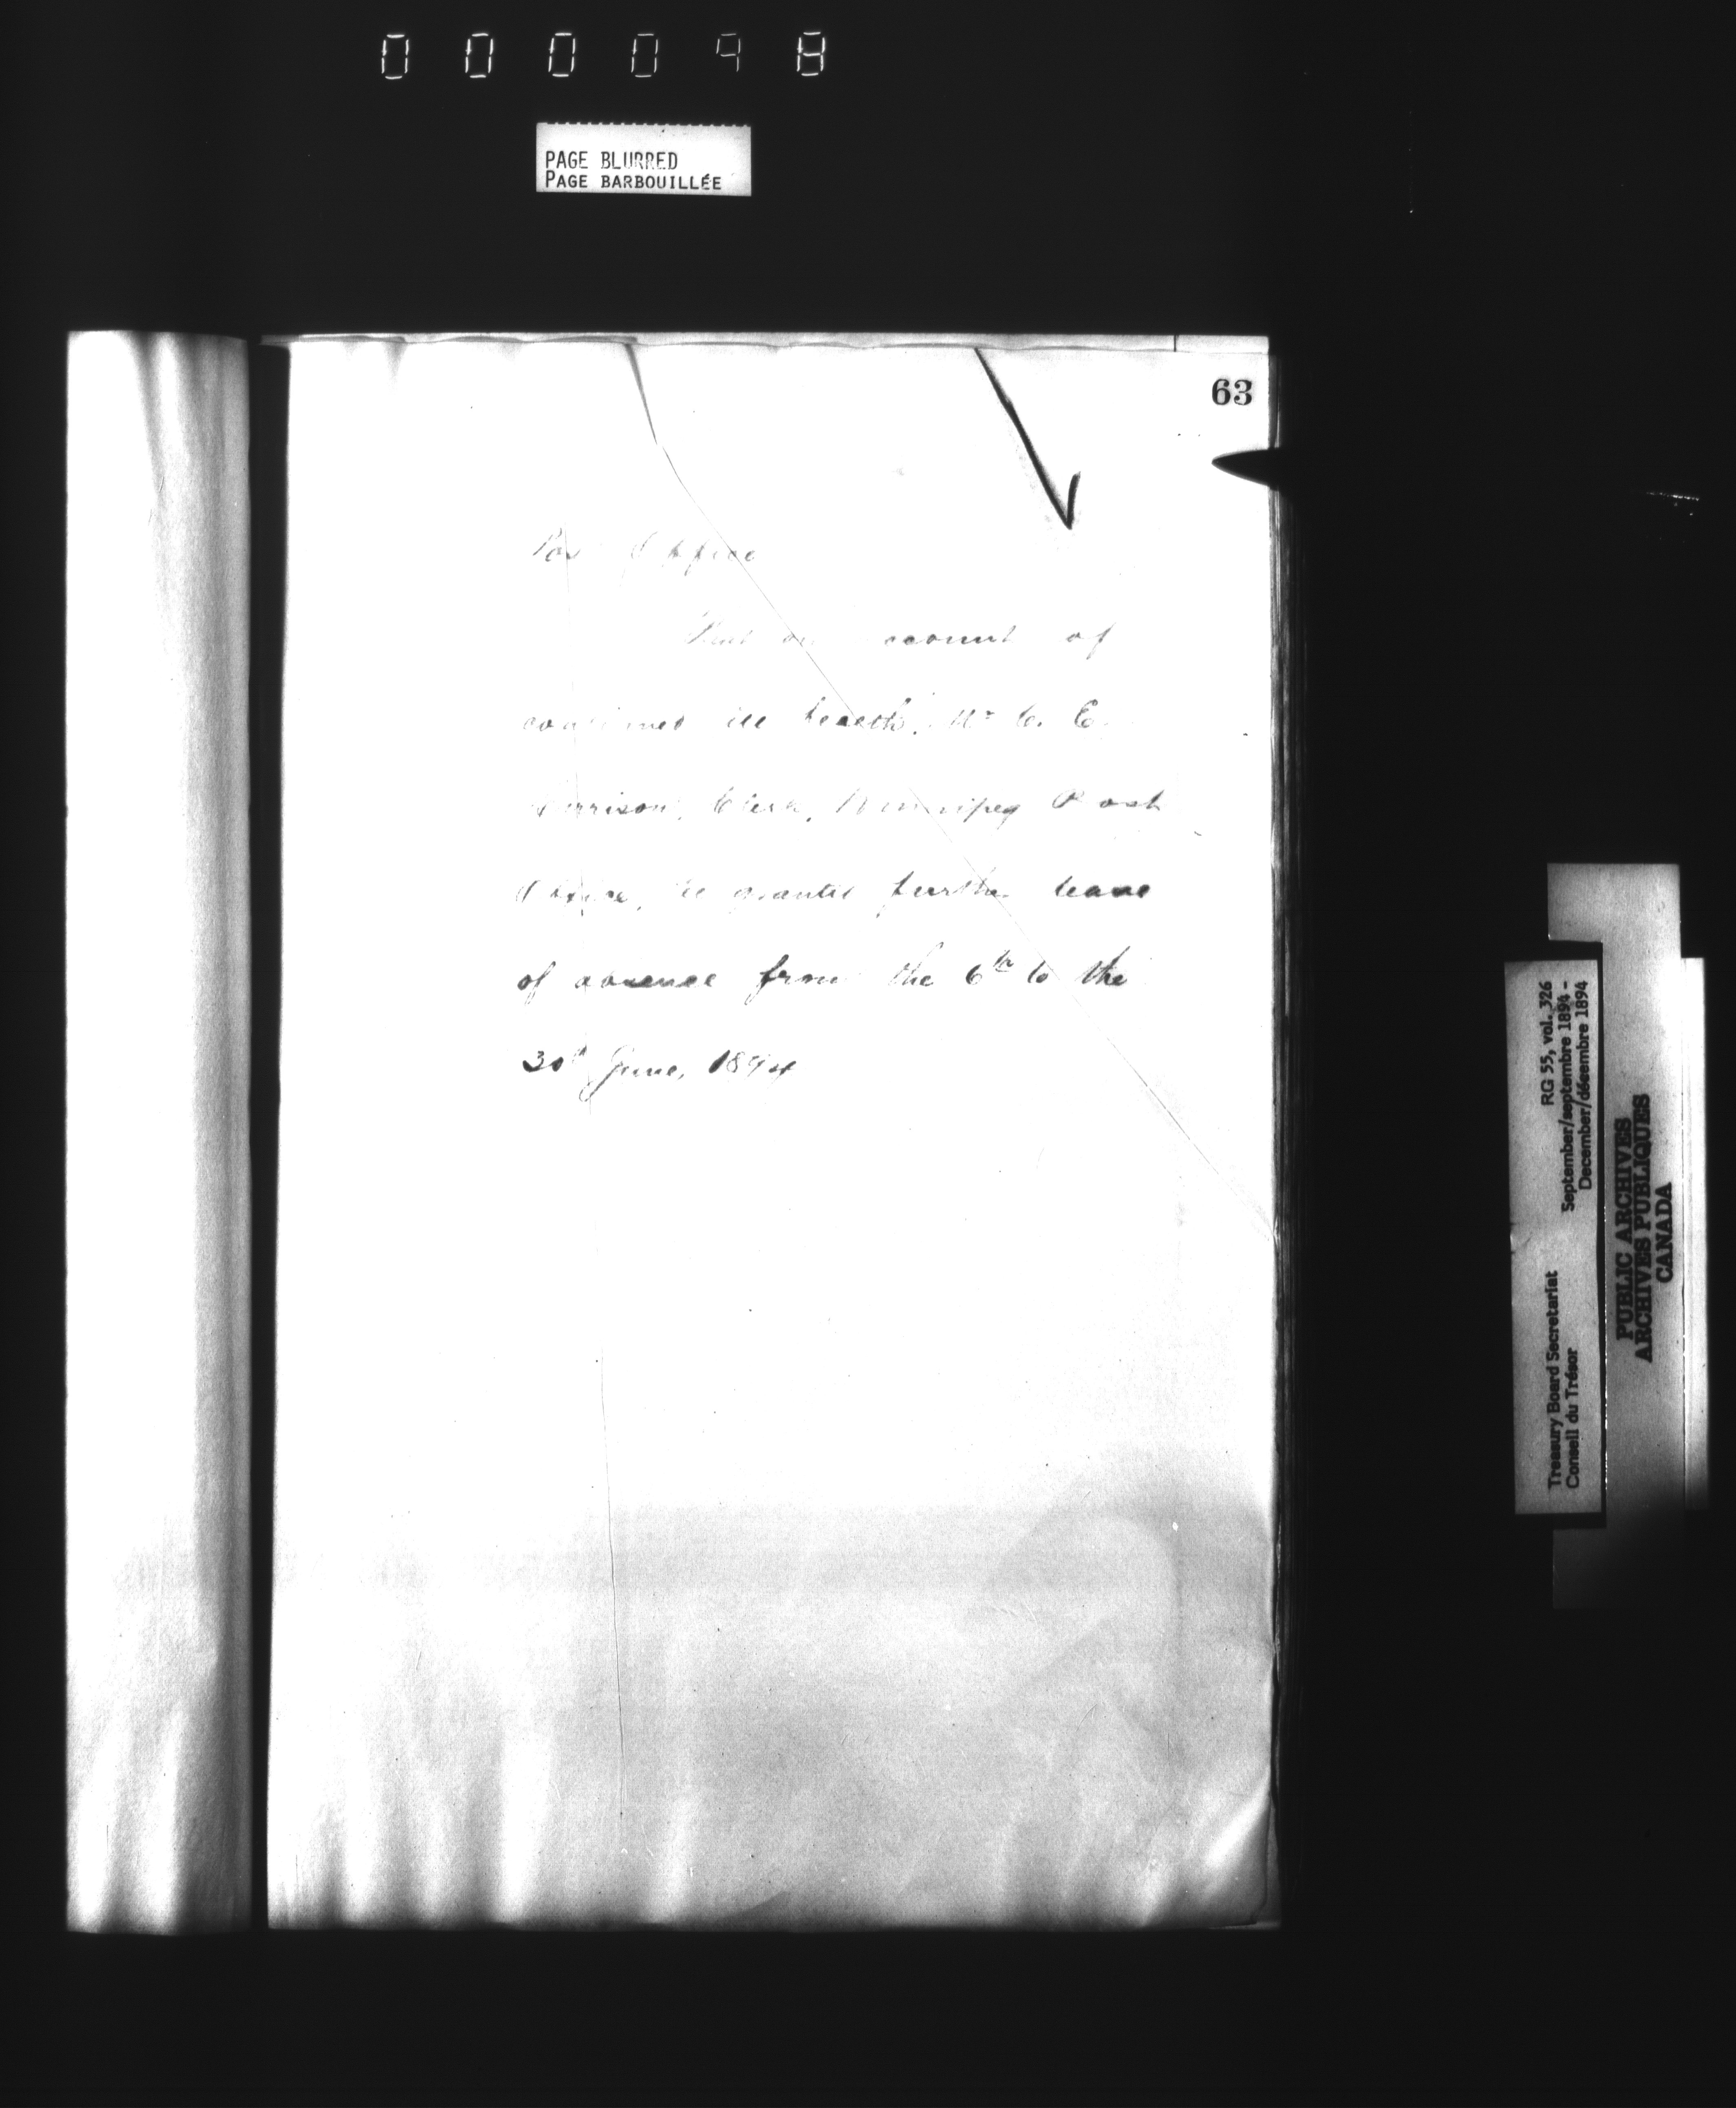 000098
PAGE BLURRED
PAGE BARBOUILLÉE
63
Post Office
That on account of
continued ill health, Mr C. E.
Clerk, Winnipeg Post
Office, be granted further leave
of absence from the 6th to the
30th June, 1894
RG 55, vol. 326
September/septembre 1894 -
December/décembre 1894
Treasury Board Secretariat
Conseil du Trésor
PUBLIC ARCHIVES
ARCHIVES PUBLIQUES
CANADA